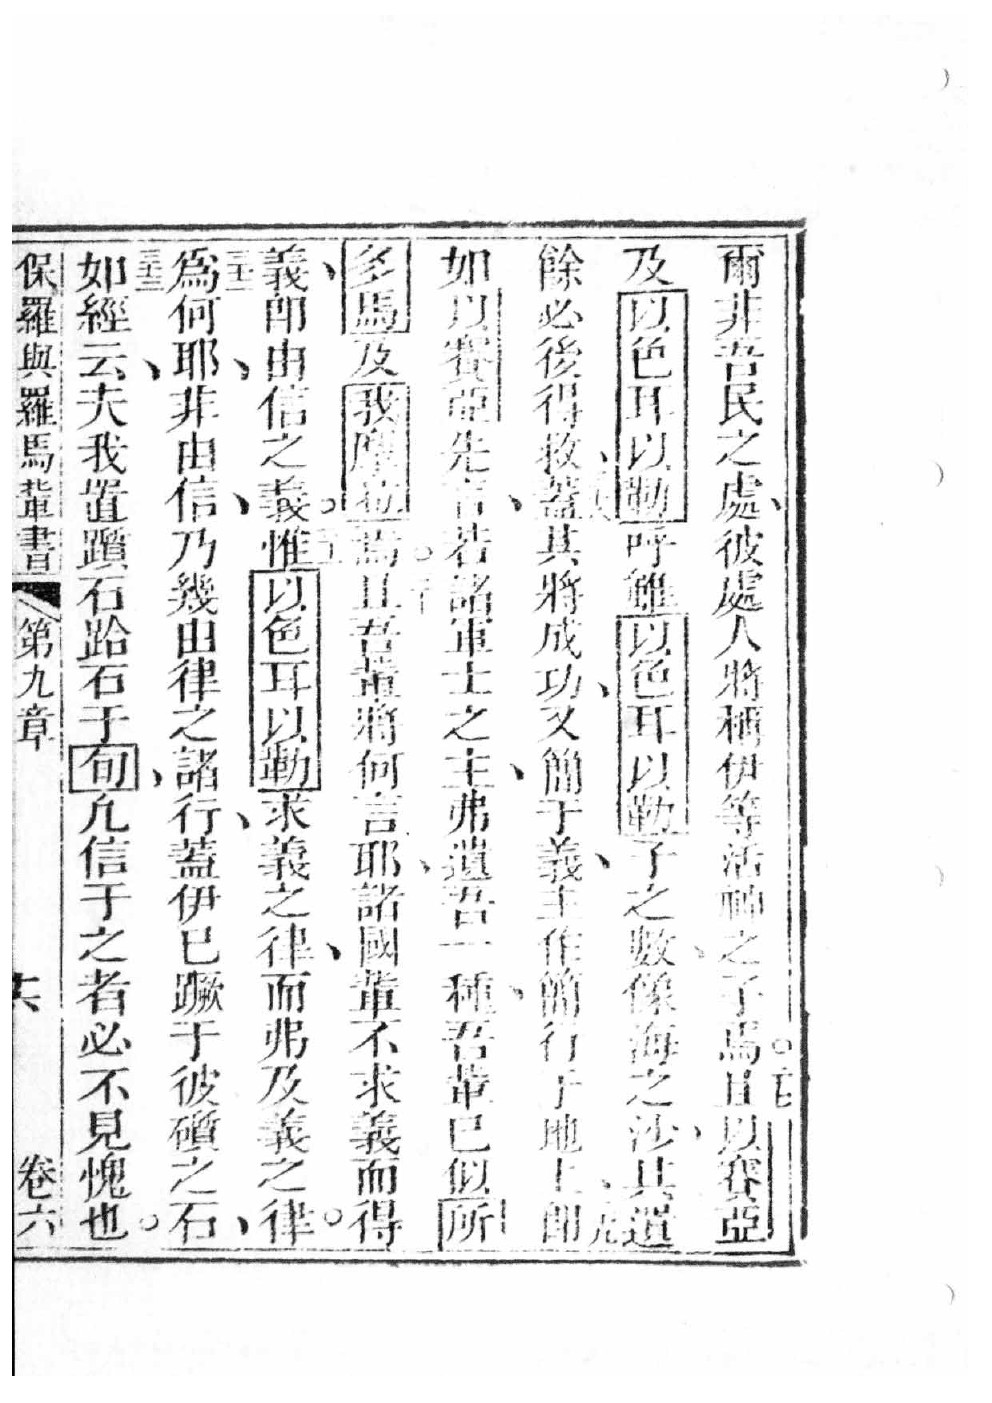 爾非吾民之處、彼處人將稱伊等活神之子焉。且以賽亞
及以色耳以勒呼雖以色耳以勒子之數、像海之沙、其遺
餘必後得救、蓋其將成功、又簡于義、主作簡行于地上、卽
如以賽亞先言、若諸軍士之主、弗遺吾一種、吾輩已似所
多馬及我摩拉焉。且吾輩將何言耶、諸國輩不求義而得
義、卽由信之義。惟以色耳以勒求義之律、而弗及義之律。
三十二
爲何耶、非由信、乃幾由律之諸行、蓋伊已蹶于彼礩之石、
三十三
如經云、夫我置躓石跲石于旬、凢信于之者必不見愧也。
保羅與羅馬輩書 第九章 十六 卷六